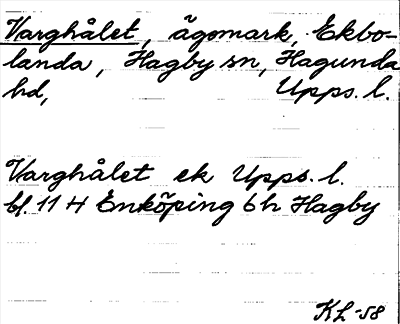 Varghålet, ägomark, Ekbo-
landa, Hagby sn, Hagunda
hd, Upps. l.
Varghålet ek Upps. l.
bl. 11 H Enköping 6h Hagby
KL-58